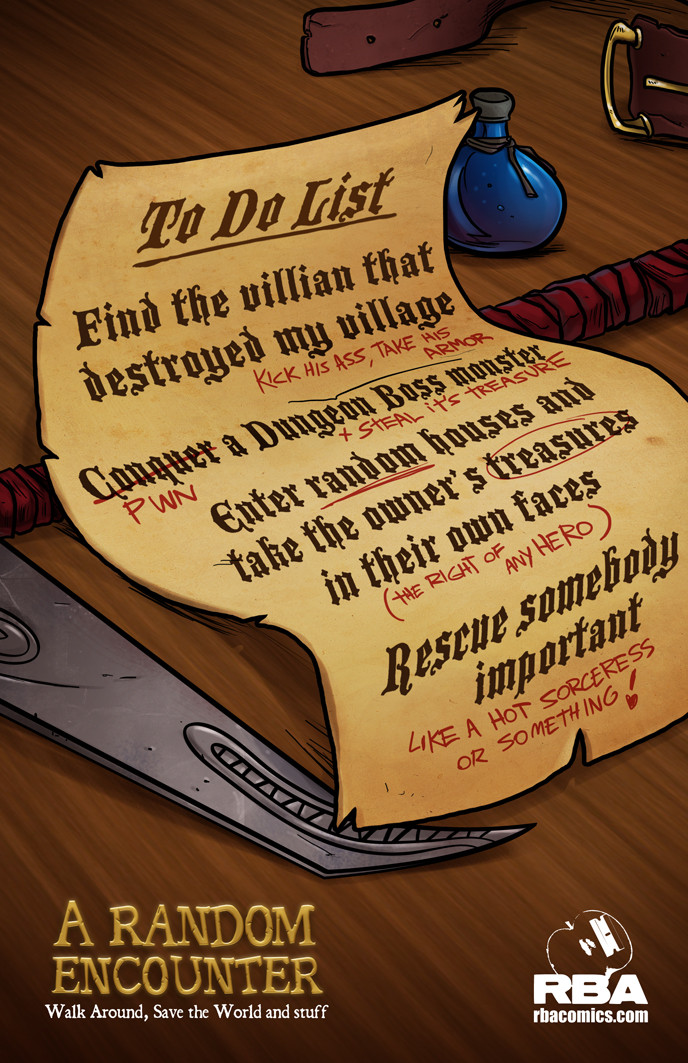 To Do List
Find the villian that
destroyed my village
KICK HIS ASS, TAKE HIS
ARMOR
Conquer a Dungeon Boss monster
PWN
+ STEAL IT'S TREASURE
Enter random houses and
take the owner's treasures
in their own faces
(THE RIGHT OF
ANY HERO)
Rescue somebody
important
LIKE A HOT SORCERESS
OR SOMETHING!
A RANDOM
ENCOUNTER
Walk Around, Save the World and stuff
RBA
rbacomics.com